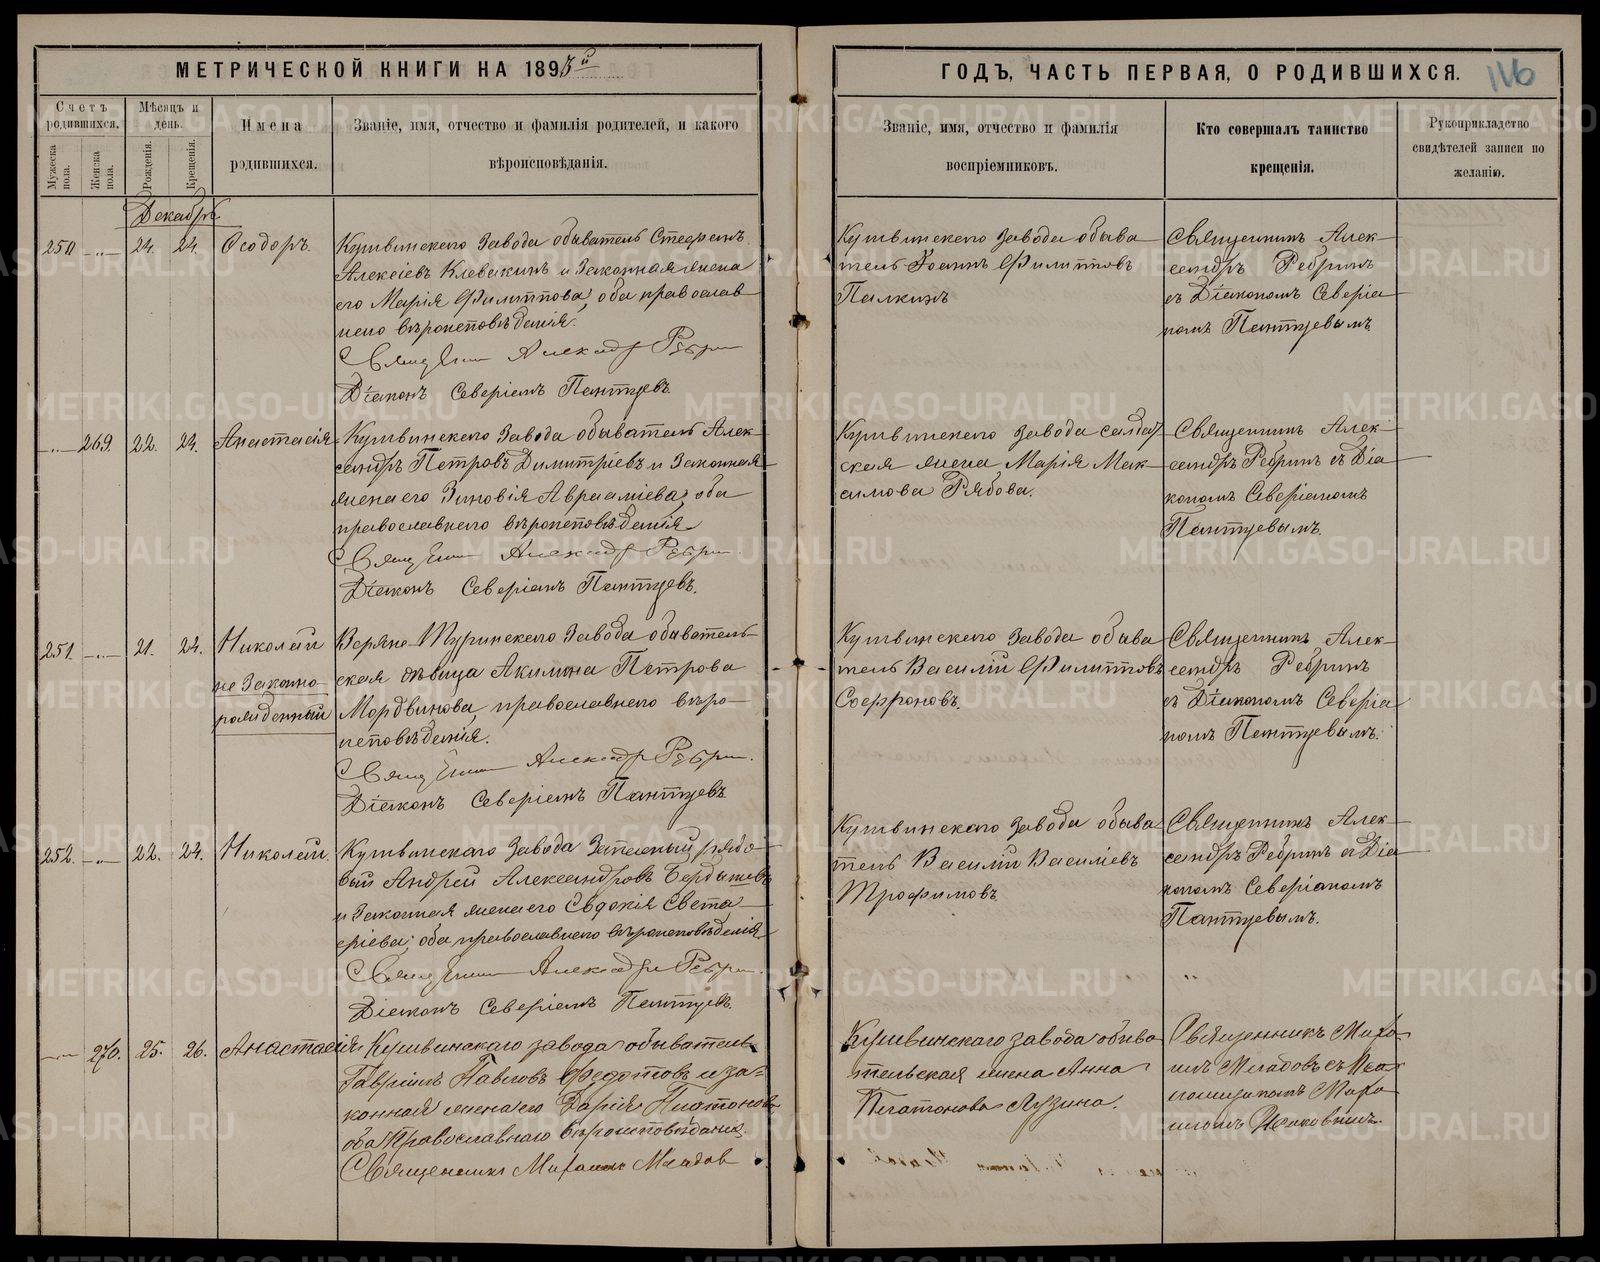 МЕТРИЧЕСКОЙ КНИГИ НА 1893й
Счетъ родившихся.
Мужеска пола.
Женска пола.
Мѣсяцъ и день.
Рожденія.
Крещенія.
Имена родившихся.
Званіе, имя, отчество и фамилія родителей, и какого
вѣроисповѣданія.
ГОДЪ, ЧАСТЬ ПЕРВАЯ, О РОДИВШИХСЯ.
116
Званіе, имя, отчество и фамилія
воспріемниковъ.
Кто совершалъ таинство
крещенія.
Рукоприкладство
свидѣтелей записи по
желанію.
Декабрь
250 24. 24. Ѳеодоръ.
Кушвинскаго Завода обыватель Стефанъ
Алексіевъ Клевакинъ и Законная жена
его Марія Филиппова, оба православ
наго вѣроисповѣданія.
Священникъ Александръ Ребринъ
Діаконъ Северіанъ Пантуевъ
Кушвинскаго Завода обыва
тель Іоаннъ Филипповъ
Палкинъ
Священникъ Алек-
сандръ Ребринъ
съ Діакономъ Северіа
номъ Пантуевымъ
269. 22. 24. Анастасія
Кушвинскаго Завода обыватель Алек-
сандръ Петровъ Димитріевъ и Законная
жена его Зиновія Авраамieва, оба
православнаго вѣроисповѣданія
Священникъ Александръ Ребринъ
Діаконъ Северіанъ Пантуевъ.
Кушвинскаго Завода солдат
ская жена Марія Мак-
симова Рябова.
Священникъ Алек-
сандръ Ребринъ съ Діа
кономъ Северіаномъ
Пантуевымъ.
251. 21. 24. Николай
не Законно
рожденный
Верхне-Туринскаго Завода обыватель-
ская дѣвица Акилина Петрова
Мордвинова, православнаго вѣро-
исповѣданія.
Священникъ Александръ Ребринъ.
Діаконъ Северіанъ Пантуевъ
Кушвинскаго Завода обыва
тель Василій Филипповъ
Софроновъ.
Священникъ Алек-
сандръ Ребринъ
съ Діакономъ Северіа
номъ Пантуевымъ.
252. 22. 24. Николай.
Кушвинскаго Завода Запасный рядо
вый Андрей Александровъ Бердышевъ
и Законная жена его Евдокія Евста
фіева; оба православнаго вѣроисповѣданія
Священникъ Александръ Ребринъ.
Діаконъ Северіанъ Пантуевъ.
Кушвинскаго Завода обыва
тель Василій Василіевъ
Трофимовъ
Священникъ Алек-
сандръ Ребринъ съ Діа
кономъ Северіаномъ
Пантуевымъ.
270. 25. 26. Анастасія
Кушвинскаго завода обыватель
Гавріилъ Павловъ Федотовъ и за-
конная жена его Дарія Платонова
оба Православнаго вѣроисповѣданія.
Священникъ Михаилъ Младов
Кушвинскаго завода обыва
тельская жена Анна
Платонова Лузина.
Священникъ Миха-
илъ Младовъ съ Пса
ломщикомъ Миха
иломъ
METRIKI.GASO-URAL.RU